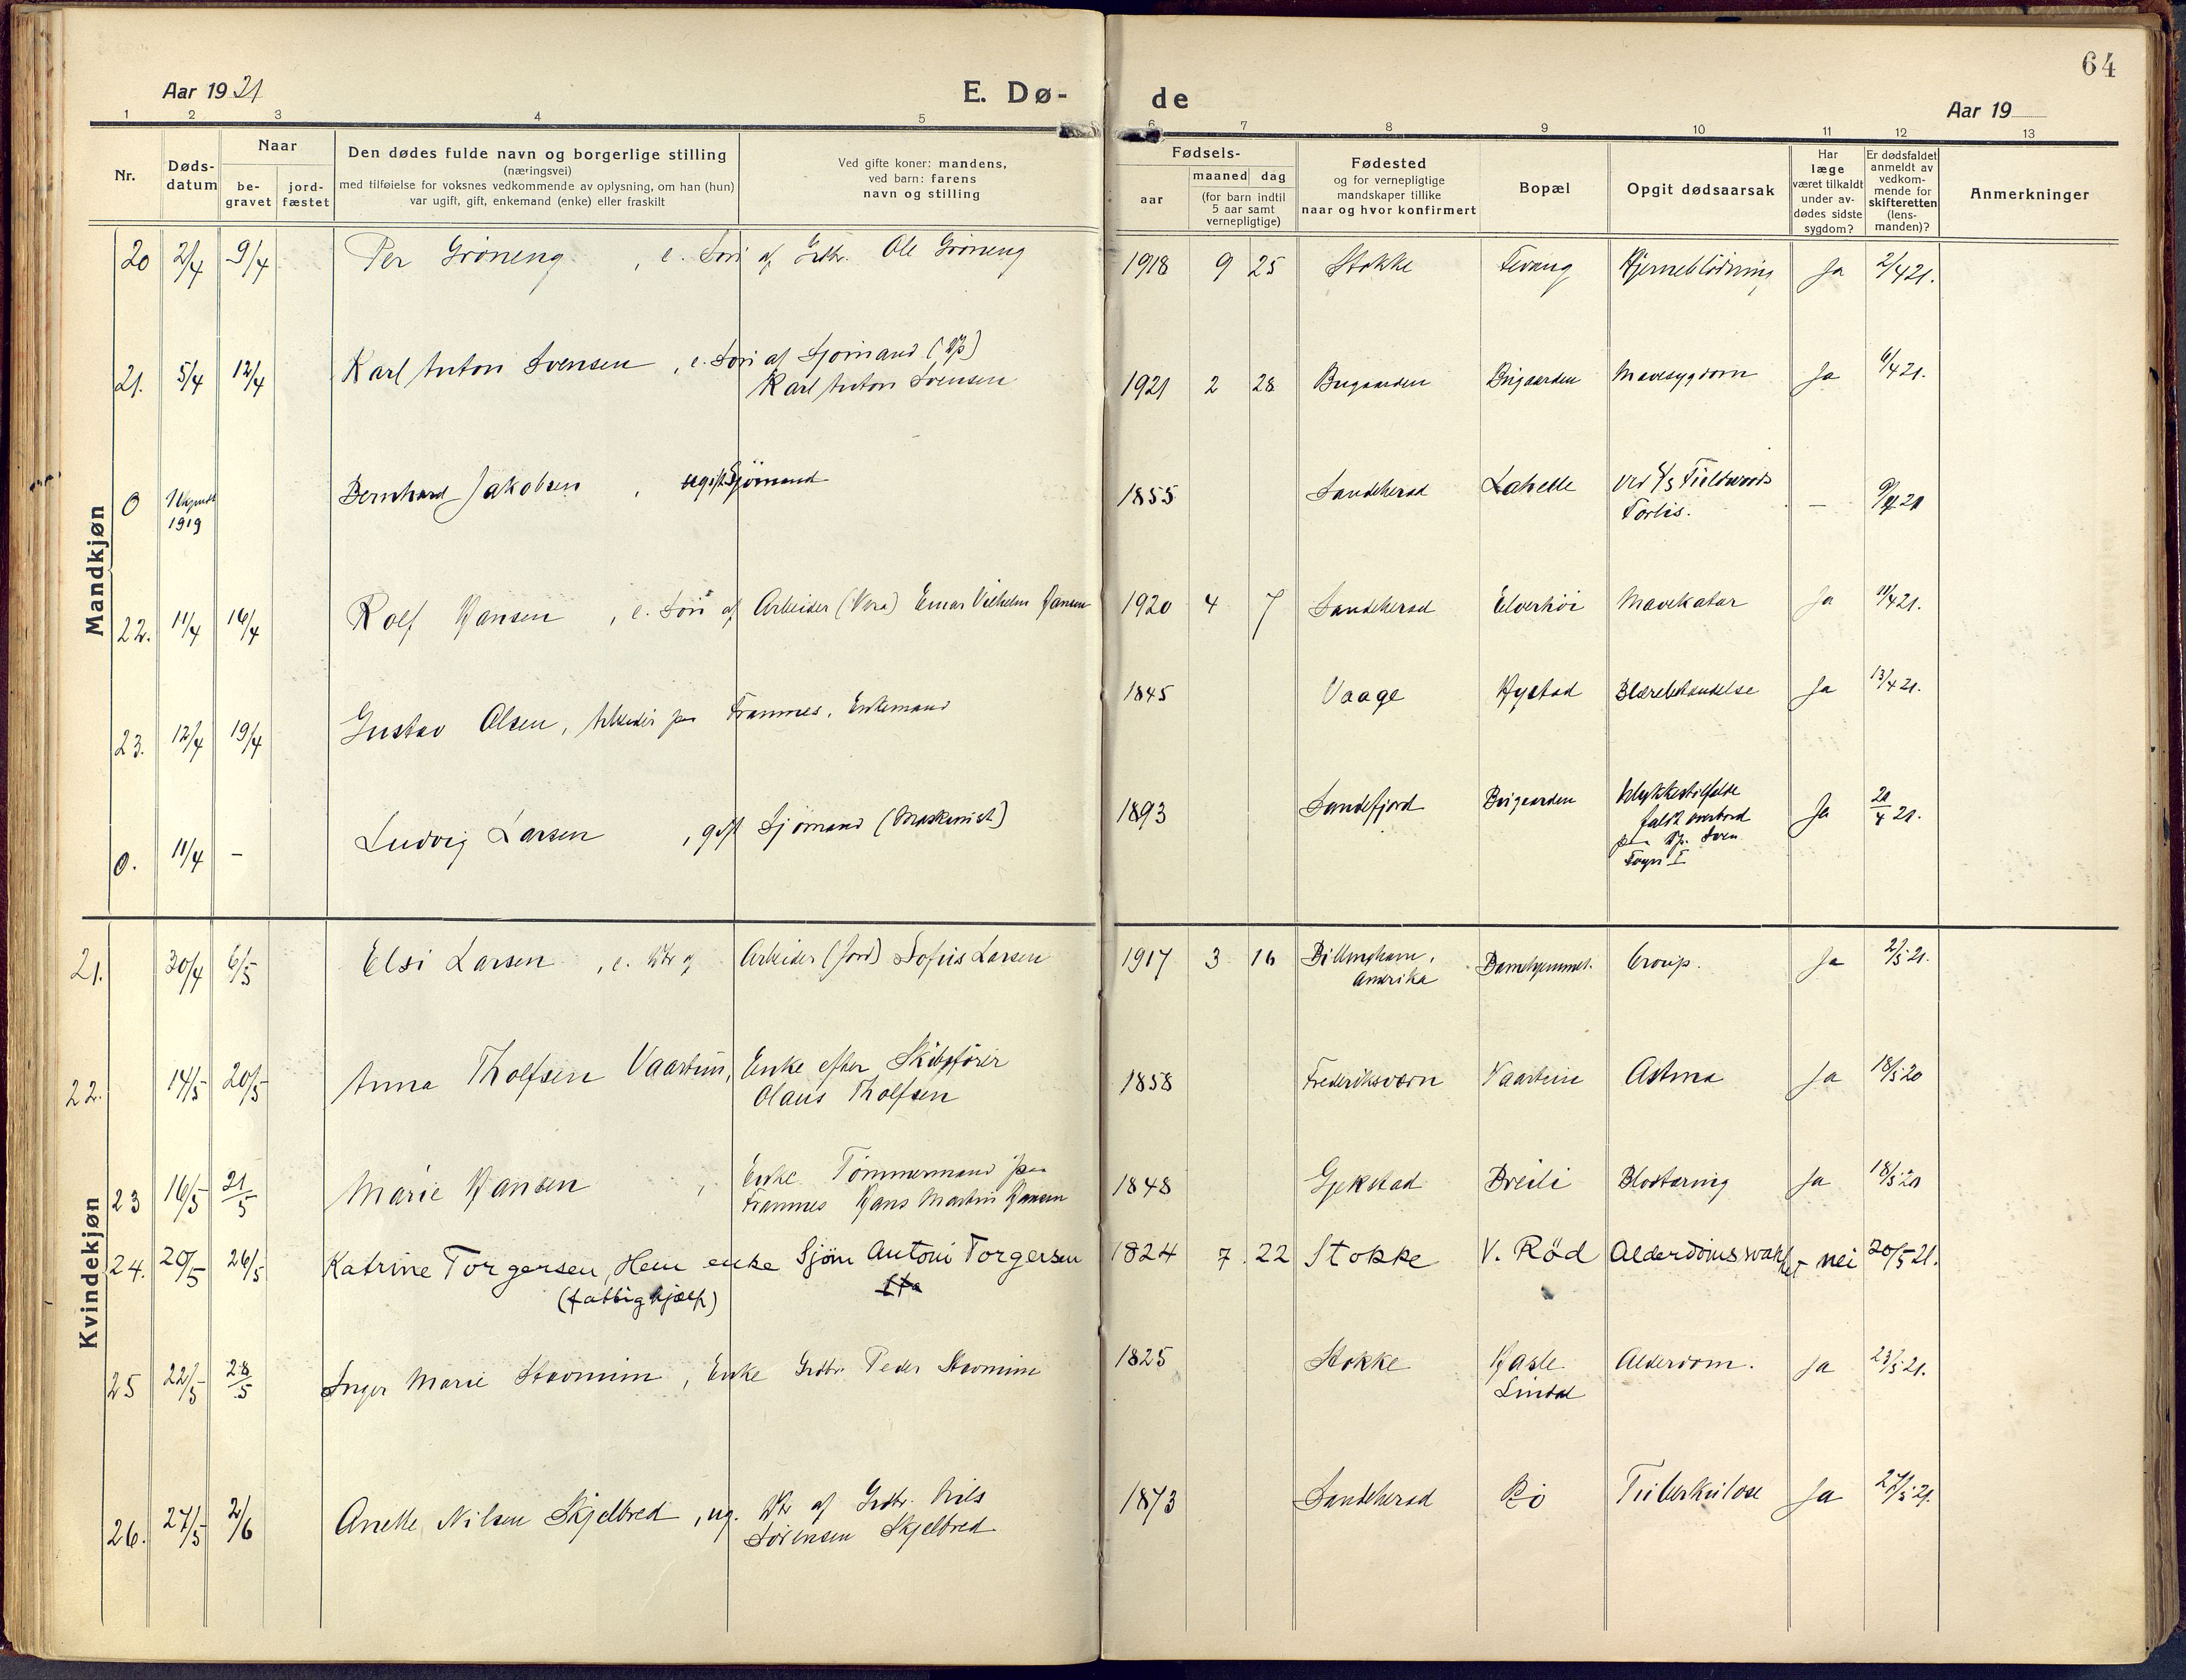 64
Aar 1921
E. Dø-
de
Aar 19
1 2 3 4 5 6 7 8 9 10 11 12 13
Nr.
Døds-
datum
Naar
be-
gravet
jord-
fæstet
Den dødes fulde navn og borgerlige stilling
(næringsvei)
med tilføielse for voksnes vedkommende av oplysning, om han (hun)
var ugift, gift, enkemand (enke) eller fraskilt
Ved gifte koner: mandens,
ved barn: farens
navn og stilling
Fødsels-
aar
maaned dag
(for barn indtil
5 aar samt
vernepligtige)
Fødested
og for vernepligtige
mandskaper tillike
naar og hvor konfirmert
Bopæl
Opgit dødsaarsak
Har
læge
været tilkaldt
under av-
dødes sidste
sygdom?
Er dødsfaldet
anmeldt av
vedkom-
mende for
skifteretten
(lens-
manden)?
Anmerkninger
Mandkjøn
20 2/4 9/4 Per Gröneng, e. Sön af Grdbr. Ole Gröneng 1918 9 25 Stokke Fevang Hjerneblödning Ja 2/4 21.
21. 5/4 12/4 Karl Anton Svensen, e. Sön af Sjömand
Karl Anton Svensen 1921 2 28 Bugaarden Bugaarden Mavesygdom Ja 6/4 21.
0 Ukjendt
1919 Bernhard Jakobsen, Sjömand 1855 Sandeherad Lahelle Ved
Forlis. - 21
22. 11/4 16/4 Rolf Hansen, e. Sön af Arbeider (Vera) Einar Vilhelm Hansen 1920 4 7 Sandeherad Elverhöi Mavekatar Ja 11/4 21.
23. 12/4 19/4 Gustav Olsen, Arbeider paa Framnes. Enkemand 1845 Vaage Hystad Ja 13/4 21.
0. 11/4 - Ludvig Larsen, gift Sjömand (Maskinist) 1893 Sandefjord Bugaarden Ulykkestilfælde
faldt overbord
paa Sven
Foyn I Ja 21.
Kvindekjøn
21. 30/4 6/5 Elsi Larsen, e. Dtr af Arbeider (Jord) Sofus Larsen 1917 3 16
Amerika Barnehjemmet. Croup. Ja 2/5 21.
22. 14/5 20/5 Anna Tholfsen Vaartun, Enke efter Skibsförer
Olaus Tholfsen 1858 Frederiksværn Vaartun Astma Ja 18/5 20
23 16/5 21/5 Marie Hansen, Enke Tömmermand paa
Framnes Hans Martin Hansen 1848 Gjekstad Breili Blodtæring Ja 18/5 21
24. 20/5 26/5 Katrine Torgersen, Hem enke Sjöm Antoni Torgersen
(fattighjælp) 1824 7 22 Stokke V. Röd Alderdomssvakhet nei 20/5 21.
25 22/5 28/5 Inger Marie Stavnum, Enke Grdbr. Peder Stavnum 1825 Stokke Hasle
Lindal Alderdom. Ja 23/5 21.
26. 27/5 2/6 Anette Nilsen Skjelbred, ug. Dtr af Grdbr. Nils
Sörensen Skjelbred 1873 Sandeherad Bö Tuberkulose Ja 27/5 21.